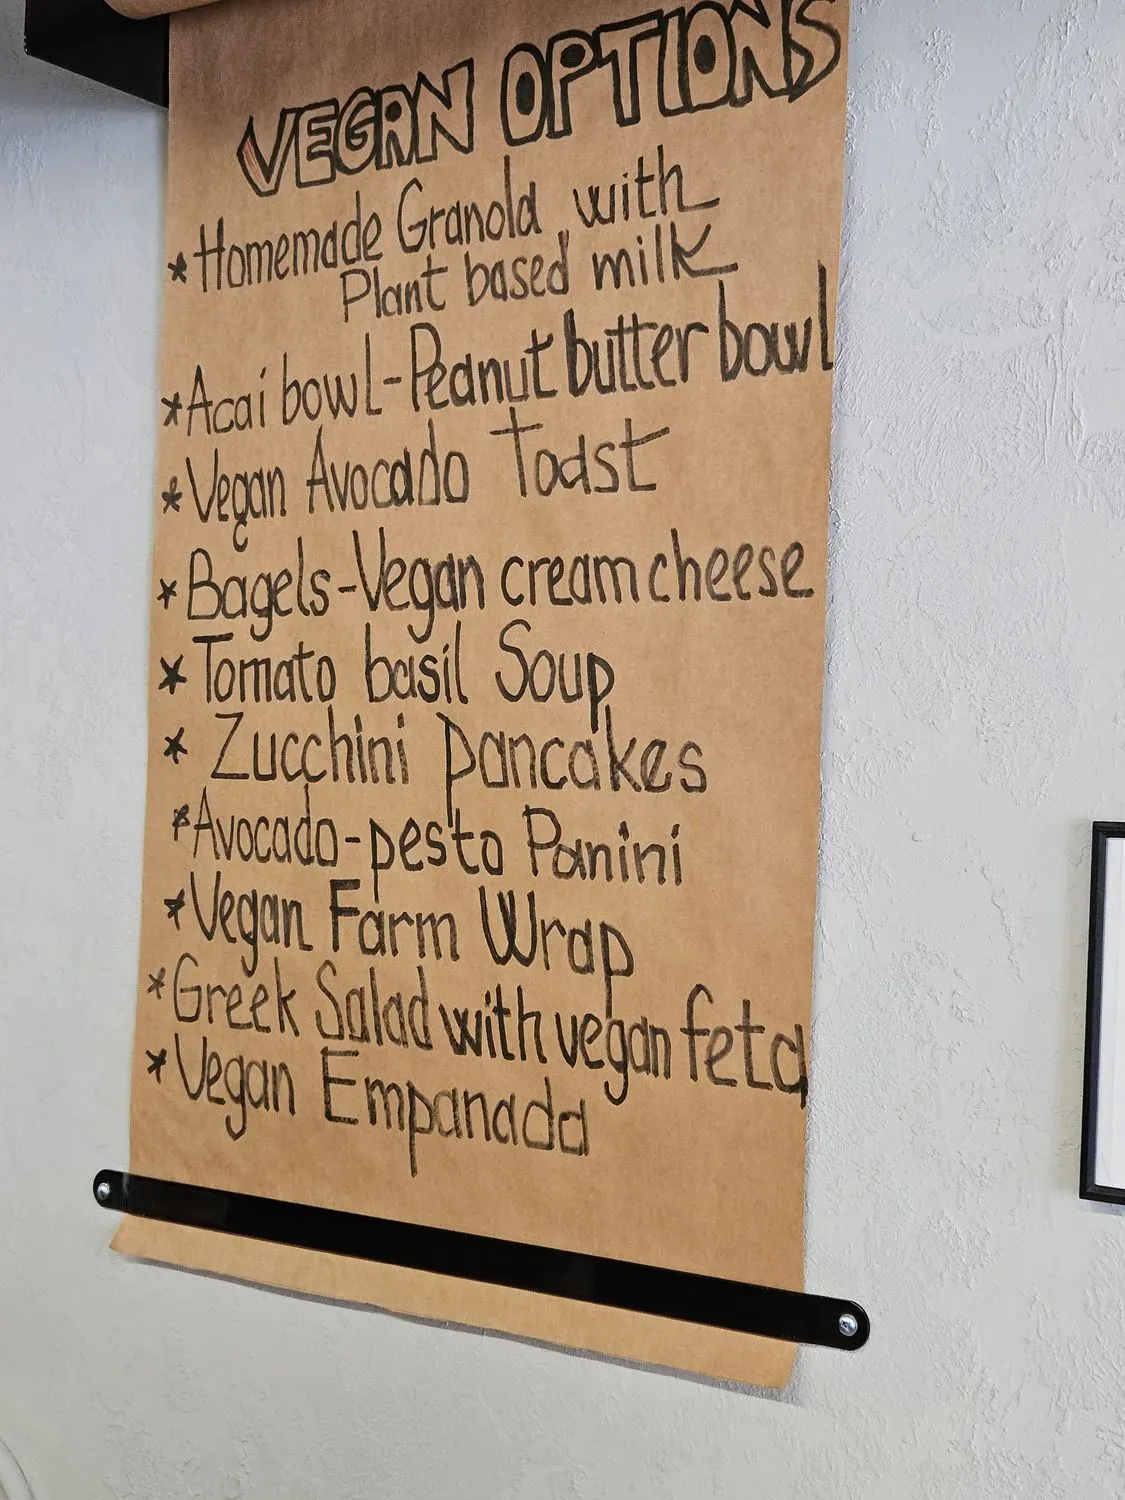 VEGAN OPTIONS
* Homemade Granola with
Plant based milk
* Acai bowl - Peanut butter bowl
* Vegan Avocado Toast
* Bagels - Vegan cream cheese
* Tomato basil Soup
* Zucchini pancakes
* Avocado - pesto Panini
* Vegan Farm Wrap
* Greek Salad with vegan feta
* Vegan Empanada